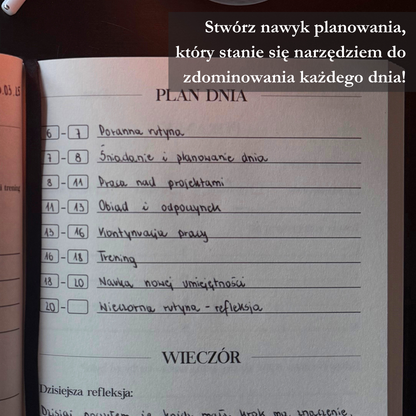 Stwórz nawyk planowania,
który stanie się narzędziem do
zdominowania każdego dnia!
.03.25
trening
PLAN DNIA
6 - 7 Poranna rutyna
7 - 8 Śniadanie i planowanie dnia
8 - 11 Praca nad projektami
11 - 13 Obiad i odpoczynek
13 - 16 Kontynuacja pracy
16 - 18 Trening
18 - 20 Nauka nowej umiejętności
20 - Wieczorna rutyna - refleksja
WIECZÓR
Dzisiejsza refleksja:
że każdy mały krok ma znaczenie.